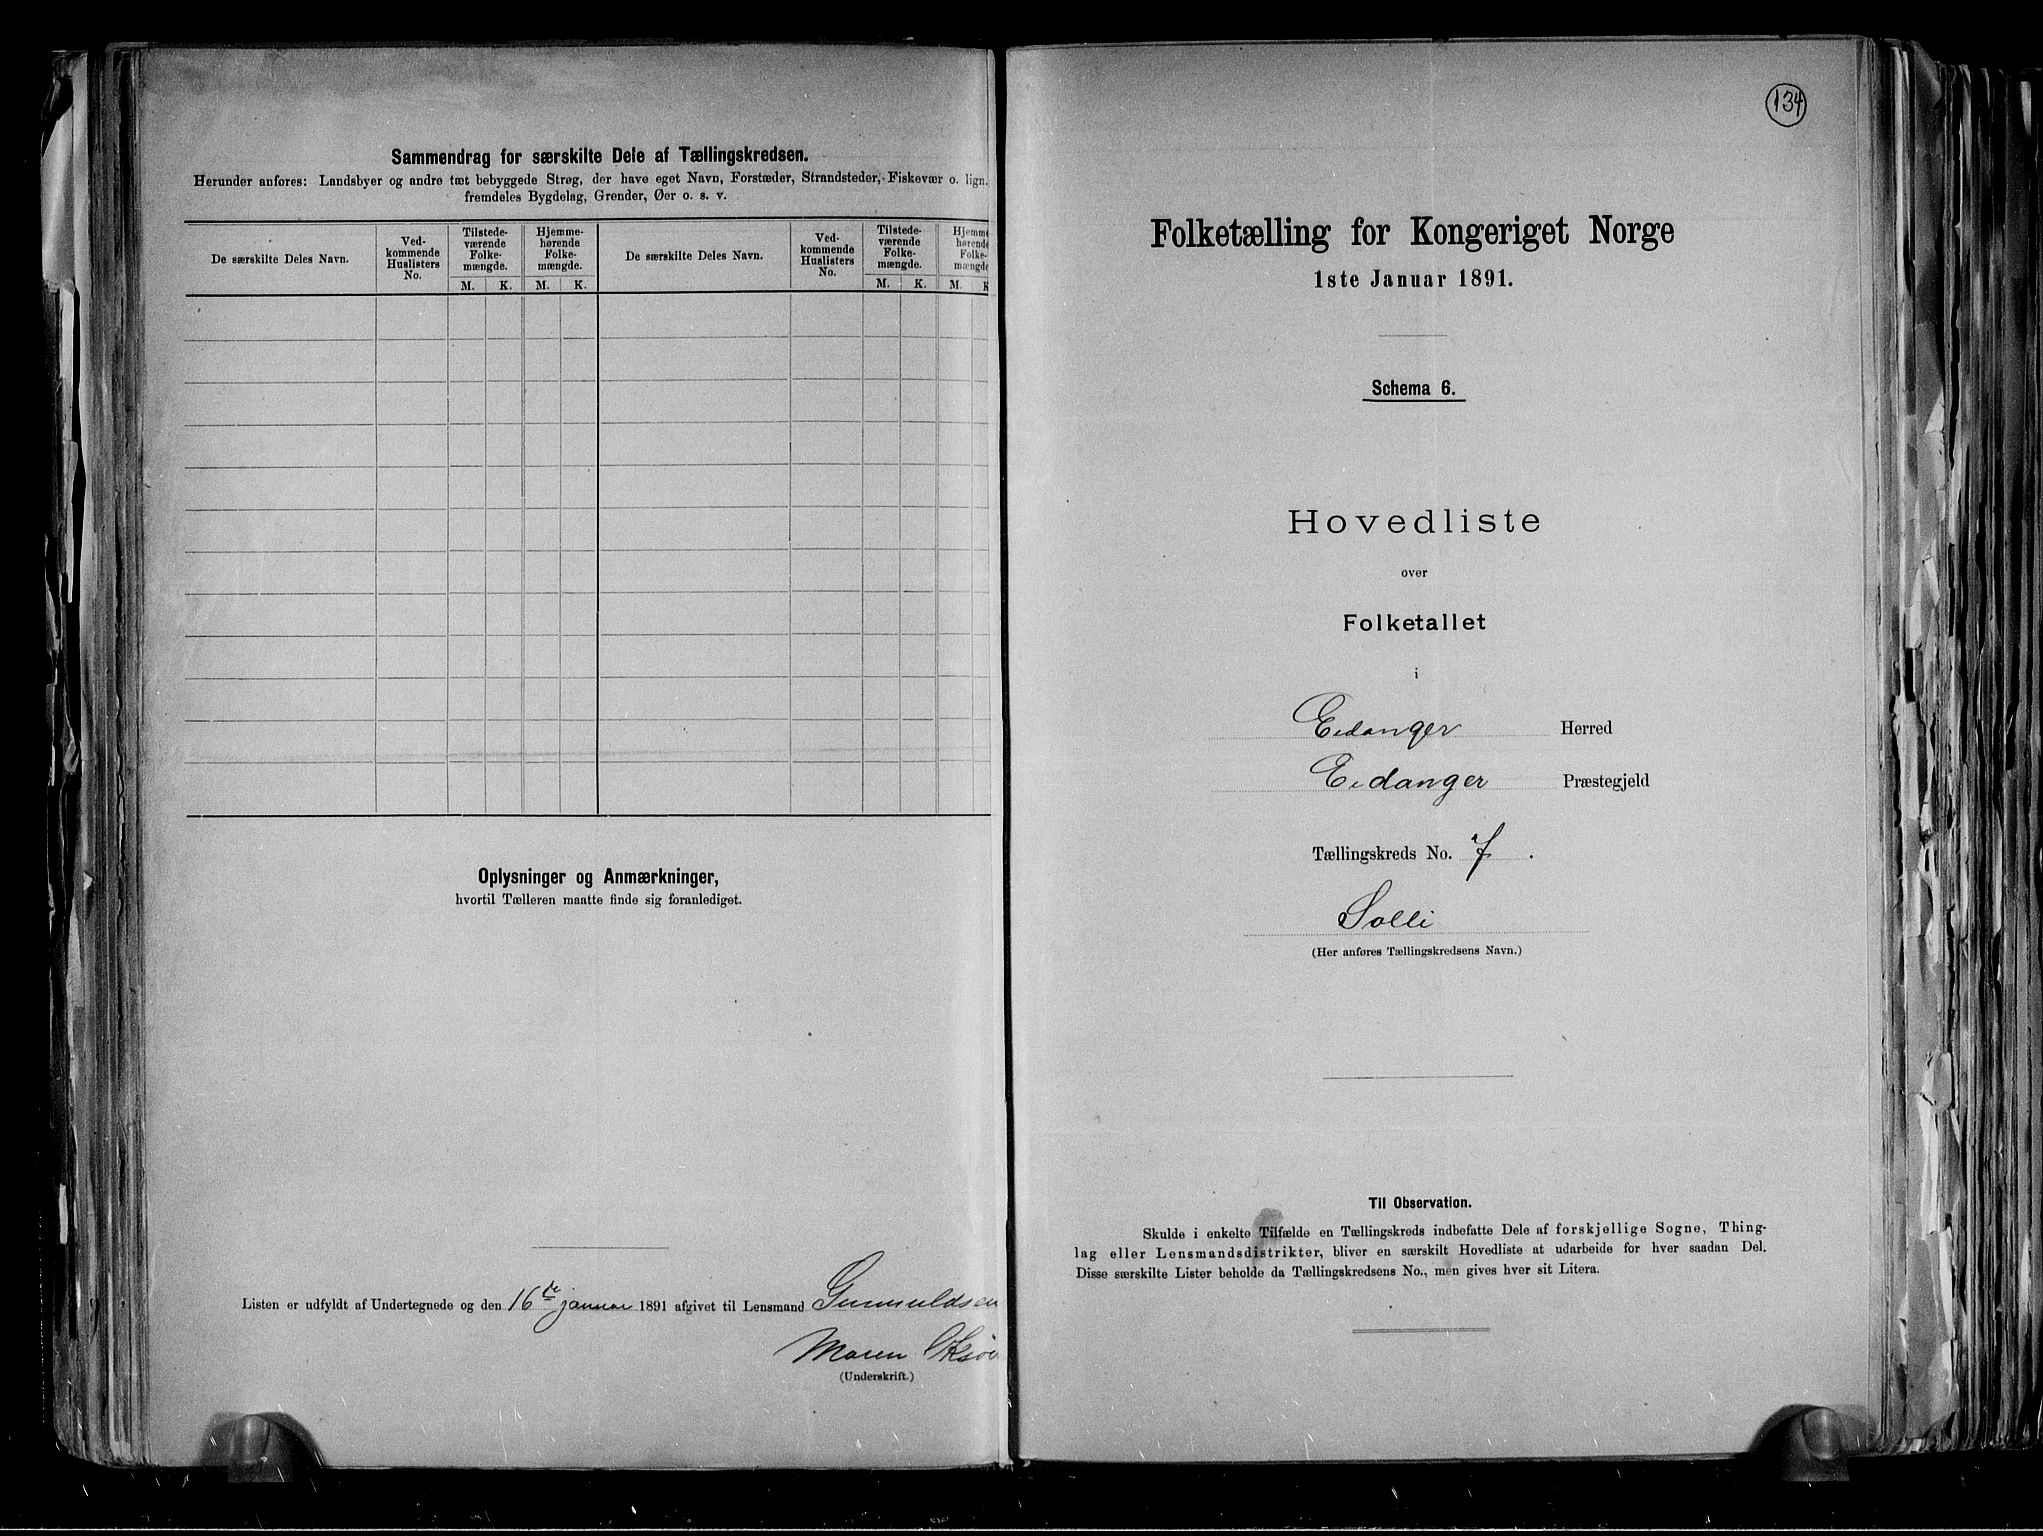 Sammendrag for særskilte Dele af Tællingskredsen.
Herunder anføres: Landsbyer og andre tæt bebyggede Strøg, der have eget Navn, Forstæder, Strandsteder, Fiskevær o. lign.
fremdeles Bygdelag, Grender, Øer o. s. v.
De særskilte Deles Navn.
Ved-
kommende
Huslisters
No.
Tilstede-
værende
Folke-
mængde.
M. K.
Hjemme-
hørende
Folke-
mængde.
M. K.
De særskilte Deles Navn.
Ved-
kommende
Huslisters
No.
Tilstede-
værende
Folke-
mængde.
M. K.
Hjemme
hørende
Folke-
mængde
M. K
Oplysninger og Anmærkninger,
hvortil Tælleren maatte finde sig foranlediget.
Listen er udfyldt af Undertegnede og den 16de januar 1891 afgivet til Lensmand Gunnuldsen
Maren
(Underskrift.)
134
Folketælling for Kongeriget Norge
1ste Januar 1891.
Schema 6.
Hovedliste
over
Folketallet
i
Eidanger Herred
Eidanger Præstegjeld
Tællingskreds No. 7.
Solli
(Her anføres Tællingskredsens Navn.)
Til Observation.
Skulde i enkelte Tilfælde en Tællingskreds indbefatte Dele af forskjellige Sogne, Thing-
lag eller Lensmandsdistrikter, bliver en særskilt Hovedliste at udarbeide for hver saadan Del.
Disse særskilte Lister beholde da Tællingskredsens No., men gives hver sit Litera.